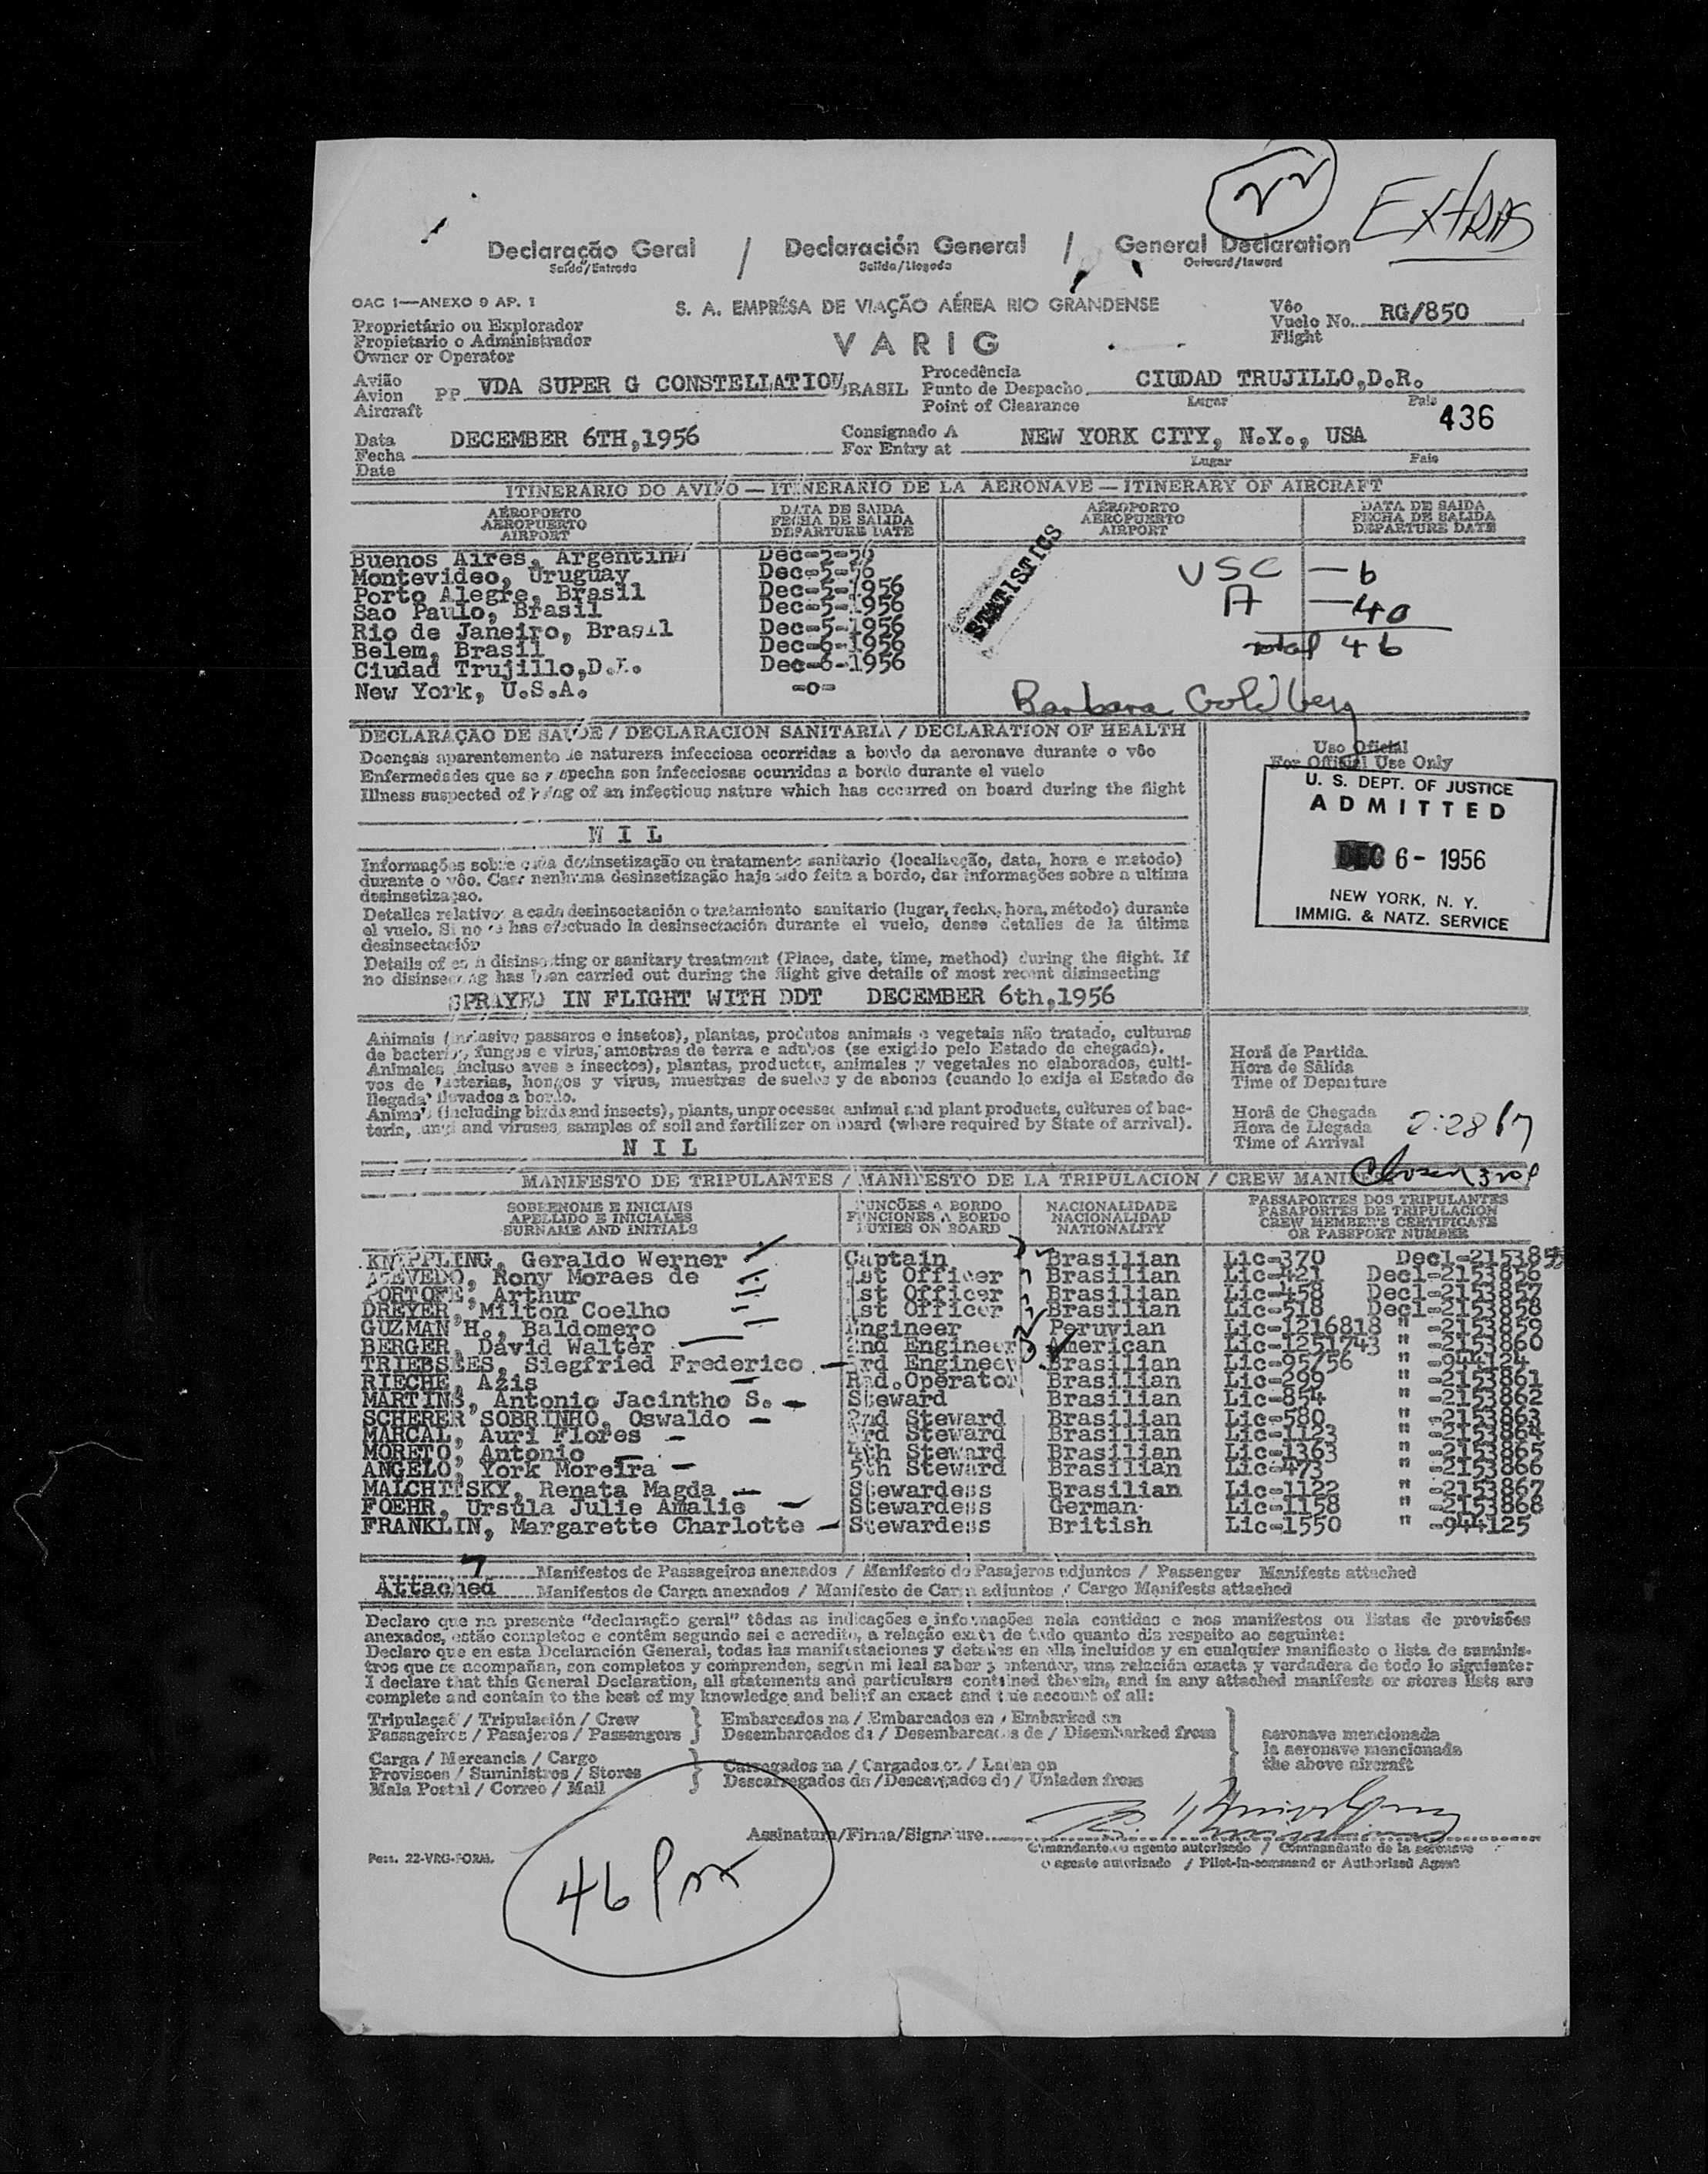 22
EXTRAS
Declaração Geral / Declaración General / General Declaration
Saída/Entrada Salida/Llegada Outward/Inward
OAC 1—ANEXO 9 AP. 1
S. A. EMPRÊSA DE VIAÇÃO AÉREA RIO GRANDENSE
VARIG
Vôo
Vuelo No. RG/850
Flight
Proprietário ou Explorador
Propietario o Administrador
Owner or Operator
Avião
Avion PP VDA SUPER G CONSTELLATION BRASIL
Aircraft
Procedência
Punto de Despacho CIUDAD TRUJILLO,D.R.
Point of Clearance
Lugar País
436
Data
Fecha DECEMBER 6TH,1956
Date
Consignado A
For Entry at NEW YORK CITY, N.Y., USA
Lugar País
ITINERARIO DO AVIÃO — ITINERARIO DE LA AERONAVE — ITINERARY OF AIRCRAFT
AÉROPORTO
AEROPUERTO
AIRPORT
DATA DE SAIDA
FECHA DE SALIDA
DEPARTURE DATE
AÉROPORTO
AEROPUERTO
AIRPORT
DATA DE SAIDA
FECHA DE SALIDA
DEPARTURE DATE
Buenos Aires, Argentina Dec-5-56
Montevideo, Uruguay Dec-5-56
Porto Alegre, Brasil Dec-5-1956
Sao Paulo, Brasil Dec-5-1956
Rio de Janeiro, Brasil Dec-5-1956
Belem, Brasil Dec-6-1956
Ciudad Trujillo,D.R. Dec-6-1956
New York, U.S.A. -o-
STATISTICS
USC — 6
A — 40
Total 46
Barbara Goldberg
DECLARAÇÃO DE SAUDE / DECLARACION SANITARIA / DECLARATION OF HEALTH
Doenças aparentemente de natureza infecciosa ocorridas a bordo da aeronave durante o vôo
Enfermedades que se sospecha son infecciosas ocurridas a bordo durante el vuelo
Illness suspected of being of an infectious nature which has occurred on board during the flight
NIL
Uso Oficial
For Official Use Only
U. S. DEPT. OF JUSTICE
ADMITTED
DEC 6 - 1956
NEW YORK, N. Y.
IMMIG. & NATZ. SERVICE
Informações sobre cada desinsetização ou tratamento sanitario (localização, data, hora e metodo)
durante o vôo. Caso nenhuma desinsetização haja sido feita a bordo, dar informações sobre a ultima
desinsetização.
Detalles relativos a cada desinsectación o tratamiento sanitario (lugar, fecha, hora, método) durante
el vuelo. Si no se has efectuado la desinsectación durante el vuelo, dense detalles de la última
desinsectación
Details of each disinsecting or sanitary treatment (Place, date, time, method) during the flight. If
no disinsecting has been carried out during the flight give details of most recent disinsecting
SPRAYED IN FLIGHT WITH DDT DECEMBER 6th,1956
Animais (inclusive passaros e insetos), plantas, produtos animais e vegetais não tratado, culturas
de bacterias, fungos e virus, amostras de terra e adubos (se exigido pelo Estado de chegada).
Animales (incluso aves e insectos), plantas, productos, animales y vegetales no elaborados, culti-
vos de bacterias, hongos y virus, muestras de suelos y de abonos (cuando lo exija el Estado de
llegada) llevados a bordo.
Animals (including birds and insects), plants, unprocessed animal and plant products, cultures of bac-
teria, fungi and viruses, samples of soil and fertilizer on board (where required by State of arrival).
NIL
Horá de Partida
Hora de Sálida
Time of Departure
Horâ de Chegada
Hora de Llegada
Time of Arrival
2:28
MANIFESTO DE TRIPULANTES / MANIFESTO DE LA TRIPULACION / CREW MANIFEST
SOBRENOME E INICIAIS
APELLIDO E INICIALES
SURNAME AND INITIALS
FUNCÕES A BORDO
FUNCIONES A BORDO
DUTIES ON BOARD
NACIONALIDADE
NACIONALIDAD
NATIONALITY
PASSAPORTES DOS TRIPULANTES
PASAPORTES DE TRIPULACION
CREW MEMBER'S CERTIFICATE
OR PASSPORT NUMBER
KNIPPLING, Geraldo Werner Captain Brasilian Lic-370 Decl-2153855
AZEVEDO, Rony Moraes de 1st Officer Brasilian Lic-421 Decl-2153856
PORTOFE, Arthur 1st Officer Brasilian Lic-458 Decl-2153857
DREYER, Milton Coelho 1st Officer Brasilian Lic-518 Decl-2153858
GUZMAN H., Baldomero Engineer Peruvian Lic-1216818 " -2153859
BERGER, David Walter 2nd Engineer American Lic-1251743 " -2153860
TRIEBSEES, Siegfried Frederico 3rd Engineer Brasilian Lic-95756 " -944124
RIECHE, Azis Rad.Operator Brasilian Lic-299 " -2153861
MARTINS, Antonio Jacintho S. Steward Brasilian Lic-854 " -2153862
SCHERER SOBRINHO, Oswaldo 2nd Steward Brasilian Lic-580 " -2153863
MARCAL, Auri Flores 3rd Steward Brasilian Lic-1123 " -2153864
MORETO, Antonio 4th Steward Brasilian Lic-1363 " -2153865
ANGELO, York Moreira 5th Steward Brasilian Lic-473 " -2153866
MALCHITSKY, Renata Magda Stewardess Brasilian Lic-1122 " -2153867
FOEHR, Ursula Julie Amalie Stewardess German Lic-1158 " -2153868
FRANKLIN, Margarette Charlotte Stewardess British Lic-1550 " -944125
7 Manifestos de Passageiros anexados / Manifesto de Pasajeros adjuntos / Passenger Manifests attached
Attached Manifestos de Carga anexados / Manifesto de Carga adjuntos / Cargo Manifests attached
Declaro que na presente "declaração geral" tôdas as indicações e informações nela contidas e nos manifestos ou listas de provisões
anexados, estão completos e contêm segundo sei e acredito, a relação exata de tudo quanto diz respeito ao seguinte:
Declaro que en esta Declaración General, todas las manifestaciones y detalles en ella incluidos y en cualquier manifiesto o lista de suminis-
tros que se acompañan, son completos y comprenden, según mi leal saber y entender, una relación exacta y verdadera de todo lo siguiente:
I declare that this General Declaration, all statements and particulars contained therein, and in any attached manifests or stores lists are
complete and contain to the best of my knowledge and belief an exact and true account of all:
Tripulaçaõ / Tripulación / Crew
Passageiros / Pasajeros / Passengers
Embarcados na / Embarcados en / Embarked on
Desembarcados da / Desembarcados de / Disembarked from
Carga / Mercancia / Cargo
Provisoes / Suministros / Stores
Mala Postal / Correo / Mail
Carregados na / Cargados en / Laden on
Descarregados da / Descargados de / Unladen from
aeronave mencionada
la aeronave mencionada
the above aircraft
Assinatura/Firma/Signature
Comandante ou agente autorizado / Commandante de la aeronave
o agente autorizado / Pilot-in-command or Authorized Agent
Pess. 22-VRG-FORM.
46 Pax